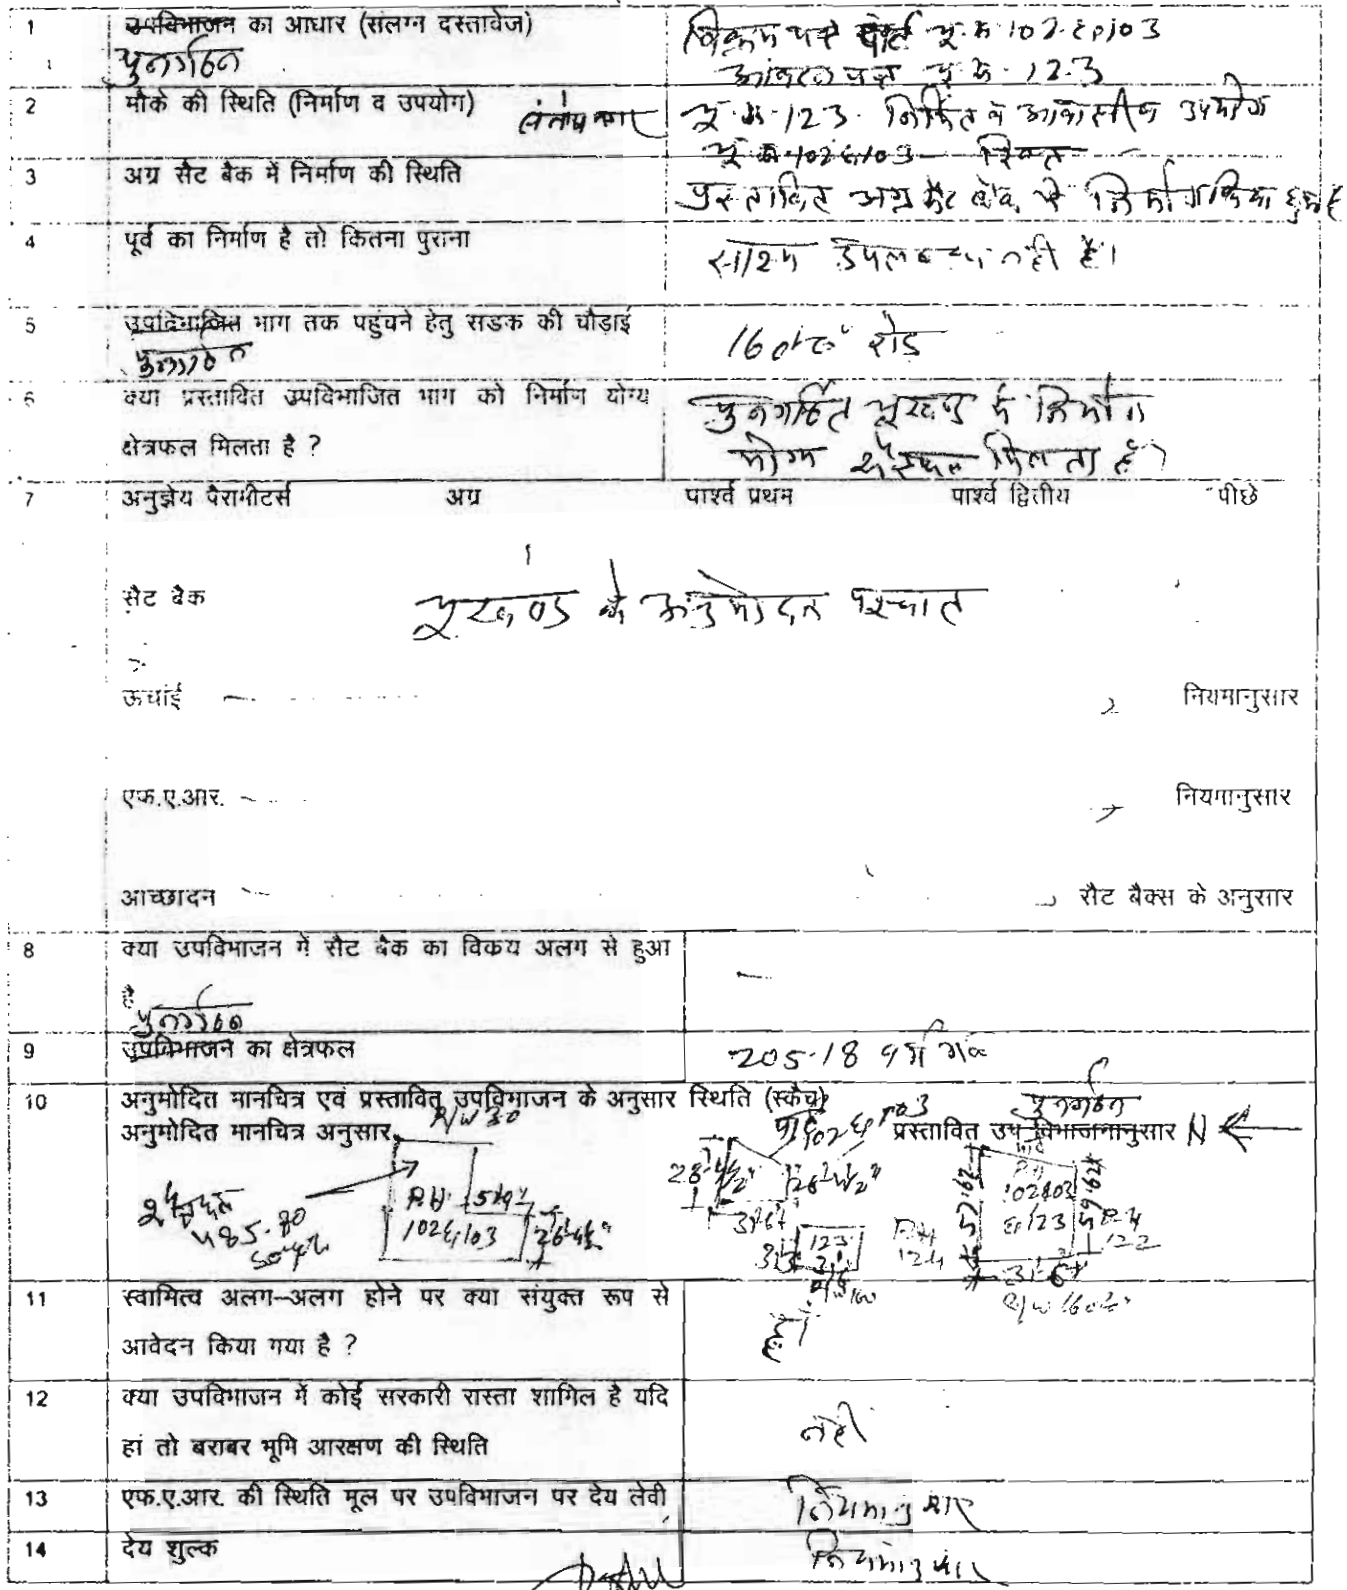 1 उपविभाजन का आधार (संलग्न दस्तावेज) विक्रय पत्र भू.क्र 102 & 103
पुनर्गठन आवंटन पत्र भू.क्र. 123
2 मौके की स्थिति (निर्माण व उपयोग) भू.क्र.123. निर्मित व आवासीय उपयोग
भू क्र 102 & 103 - रिक्त
3 अग्र सैट बैक में निर्माण की स्थिति प्रस्तावित अग्र सैट बैक में निर्माण किया हुआ है
4 पूर्व का निर्माण है तो कितना पुराना साक्ष्य उपलब्ध नहीं है।
5 उपविभाजित भाग तक पहुंचने हेतु सडक की चौड़ाई 160 रोड
पुनर्गठन
6 क्या प्रस्तावित उपविभाजित भाग को निर्माण योग्य पुनर्गठित भूखण्ड में निर्माण
क्षेत्रफल मिलता है ? योग्य क्षेत्रफल मिलता है।
7 अनुज्ञेय पैरामीटर्स अग्र पार्श्व प्रथम पार्श्व द्वितीय पीछे
सैट बैक भूखण्ड के अनुमोदन पश्चात
ऊचांई नियमानुसार
एफ.ए.आर. नियमानुसार
आच्छादन सैट बैक्स के अनुसार
8 क्या उपविभाजन में सैट बैक का विकय अलग से हुआ -
है
पुनर्गठन
9 उपविभाजन का क्षेत्रफल 205.18 वर्ग गज
10 अनुमोदित मानचित्र एवं प्रस्तावित उपविभाजन के अनुसार स्थिति (स्कैच) पुनर्गठन
अनुमोदित मानचित्र अनुसार R/W 30 102 & 103 प्रस्तावित उप विभाजनानुसार N
28'-4½" 26'-4½" 57'.62 49.62
क्षेत्रफल 485.80 P.N. 102 & 103 31'-6" 123 P.N. 124 P.N. 102 & 103 & 123 P.N. 122
31'-6" R/W 160
11 स्वामित्व अलग-अलग होने पर क्या संयुक्त रूप से हाँ
आवेदन किया गया है ?
12 क्या उपविभाजन में कोई सरकारी रास्ता शामिल है यदि नही
हां तो बराबर भूमि आरक्षण की स्थिति
13 एफ.ए.आर. की स्थिति मूल पर उपविभाजन पर देय लेवी नियमानुसार
14 देय शुल्क नियमानुसार